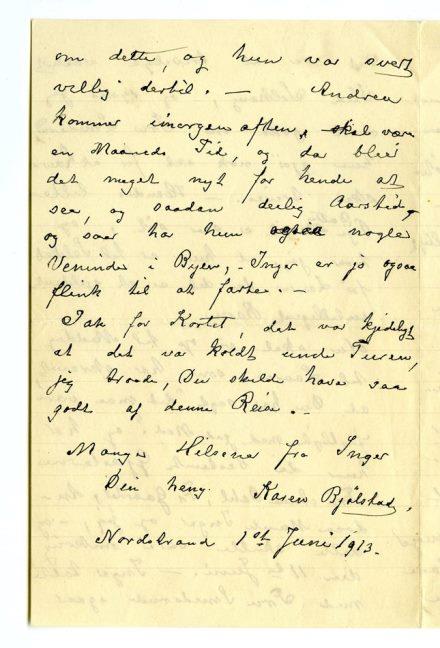 om dette, og hun var svert
villig dertil. — Andrea
kommer imorgen aften, skal være
en Maaneds Tid, og da bliv
det meget nyt for hende at
see, og saadan deilig Aarstid,
og saa har hun ogsaa nogle
Veninder i Byen, - Inger er jo ogsaa
flink til at
Tak for Kortet, det var kjedeligt
at det var koldt under Turen,
jeg troede, Du skulde have saa
godt af denne Reise. —
Mange Hilsener fra Inger
Din heng. Karen Bjølstad,
Nordstrand 1st Juni 1913.